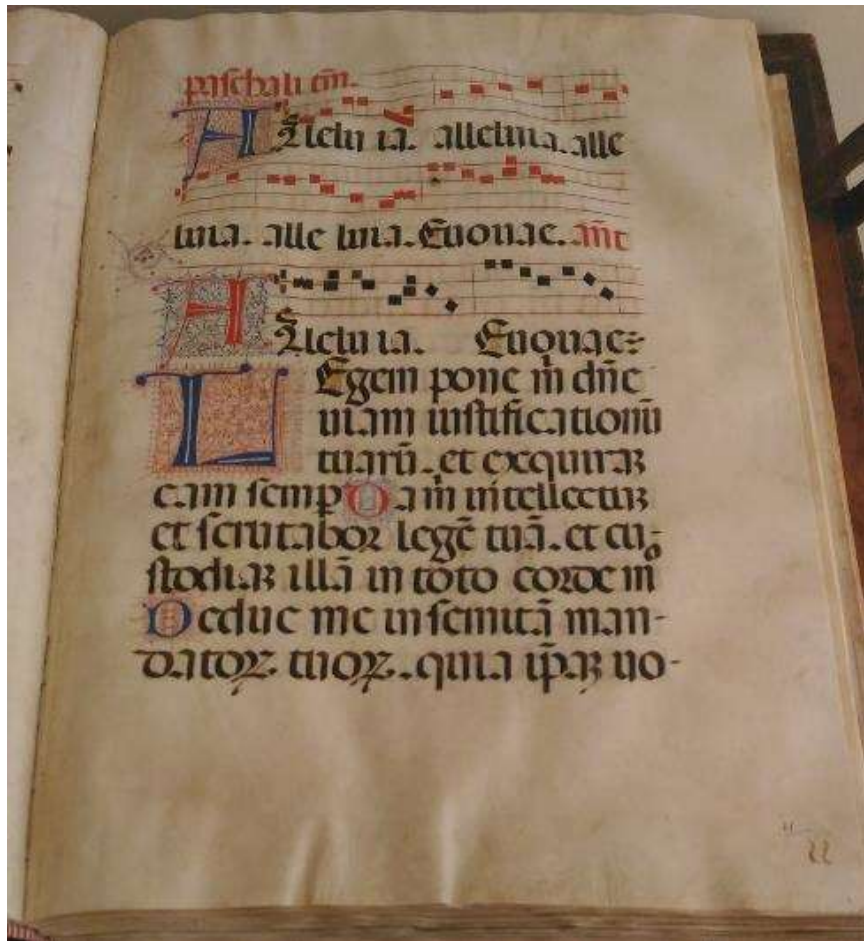 paschali tēm.
Alleluia. alleluia. alle
luia. alle luia. Euouae. an̄t
Alleluia. Euouae:
Legem pone m̄ dn̄e
uiam iustificationū
tuarū. et exquiraꝫ
eam semꝑ Da m̄ intellectuꝫ
et scrutabor legē tuā. et cu-
stodiaꝫ illā in toto corde mͦ
Deduc me in semitā man-
datoꝝ tuoꝝ. quia ip̄aꝫ uo-
22